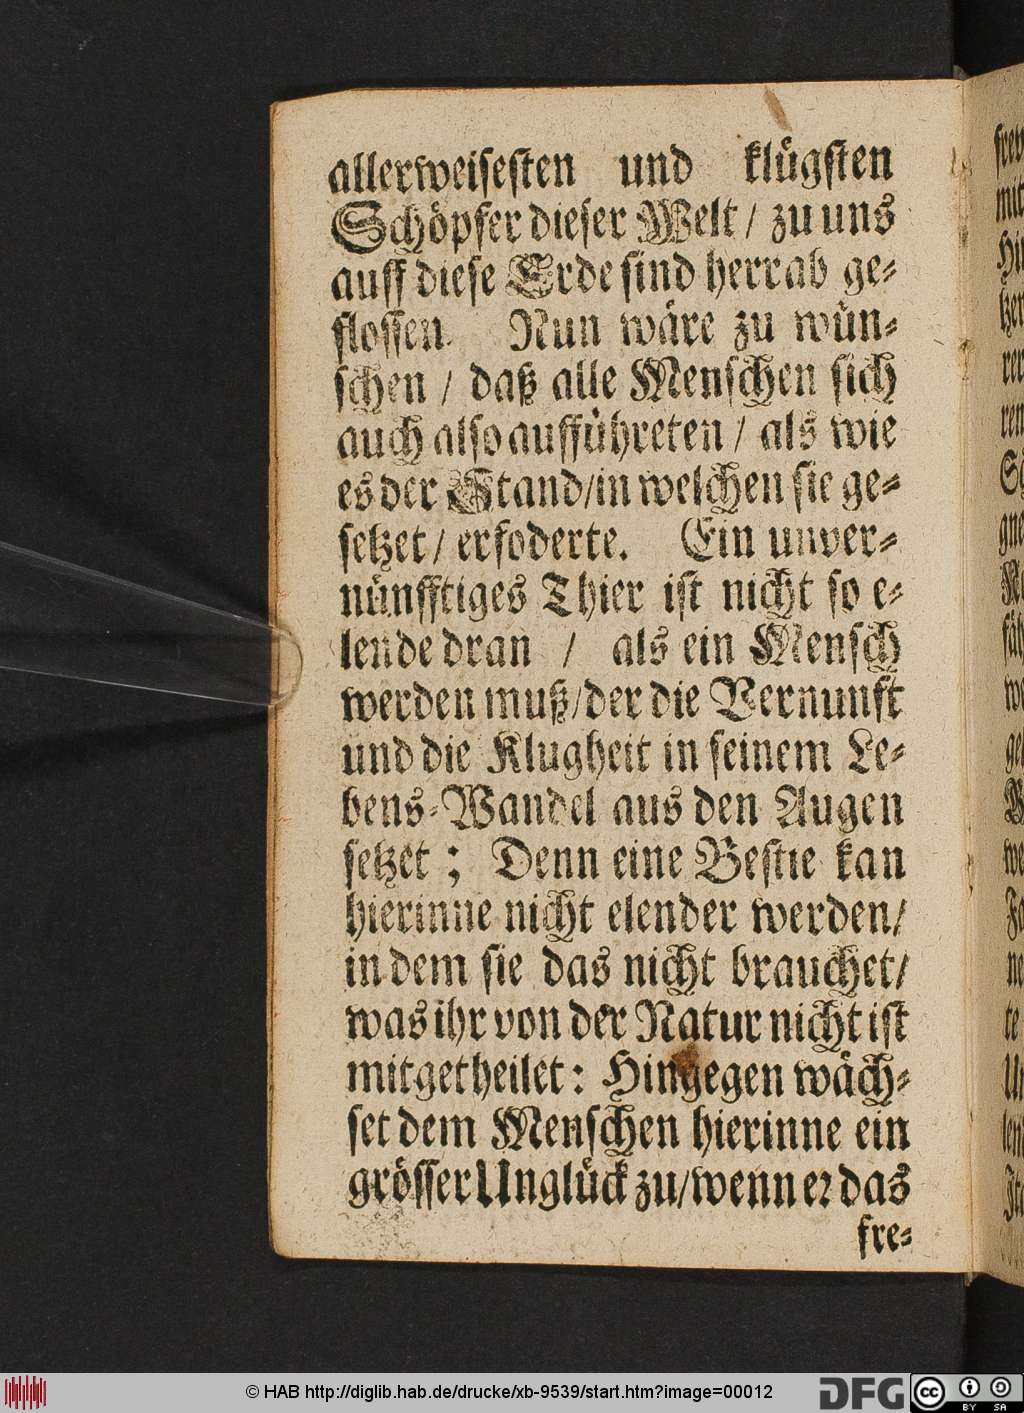 allerweisesten und klügsten
Schöpfer dieser Welt / zu uns
auff diese Erde sind herrab ge-
flossen. Nun wäre zu wün-
schen / daß alle Menschen sich
auch also aufführeten / als wie
es der Stand/in welchen sie ge-
setzet / erfoderte. Ein unver-
nünfftiges Thier ist nicht so e-
lende dran / als ein Mensch
werden muß/der die Vernunft
und die Klugheit in seinem Le-
bens-Wandel aus den Augen
setzet ; Denn eine Bestie kan
hierinne nicht elender werden/
in dem sie das nicht brauchet/
was ihr von der Natur nicht ist
mitgetheilet : Hingegen wäch-
set dem Menschen hierinne ein
grösser Unglück zu/wenn er das
fre-
© HAB http://diglib.hab.de/drucke/xb-9539/start.htm?image=00012
DFG
cc BY SA